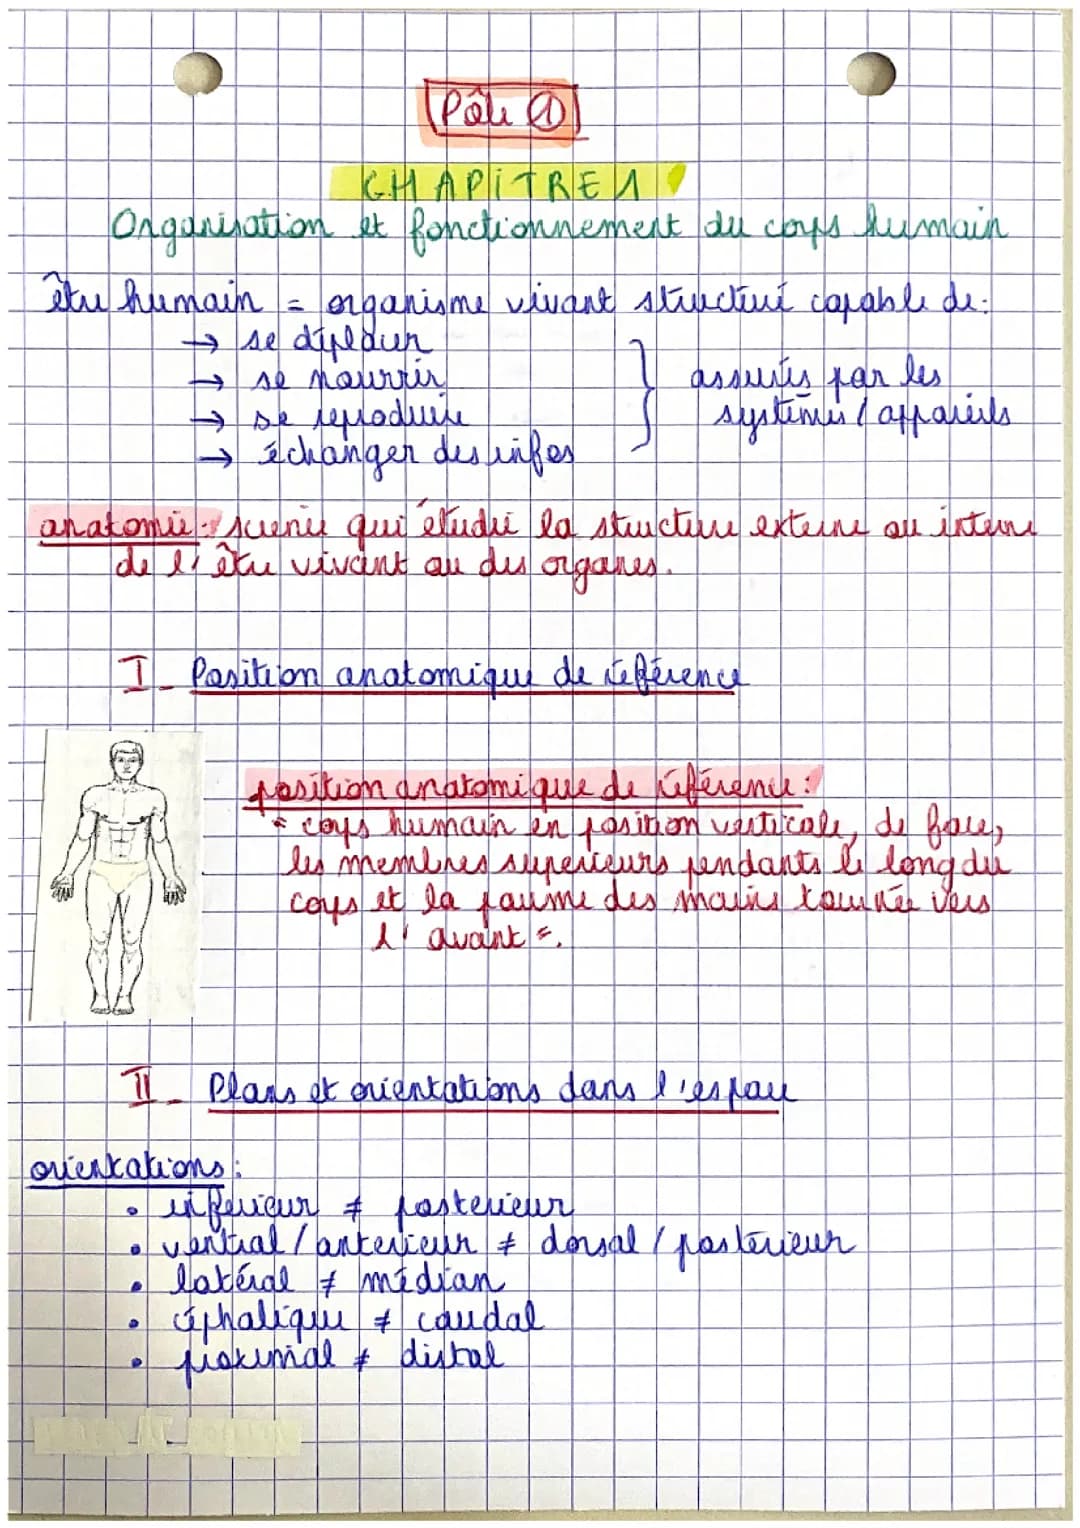 Pôle ①
CHAPITRE 1
Organisation et fonctionnement du corps humain
être humain = organisme vivant structuré capable de:
→ se déplacer
→ se nourrir
→ se reproduire
→ échanger des infos
} assurés par les
systèmes / appareils
anatomie : science qui étudie la structure externe ou interne
de l'être vivant ou des organes.
I_ Position anatomique de référence
position anatomique de référence :
= corps humain en position verticale, de face,
les membres superieurs pendants le long du
corps et la paume des mains tournée vers
l'avant =.
II_ Plans et orientations dans l'espace
orientations :
• inférieur ≠ posterieur
• ventral / anterieur ≠ dorsal / postérieur
• latéral ≠ médian
• céphalique ≠ caudal
• proximal ≠ distal